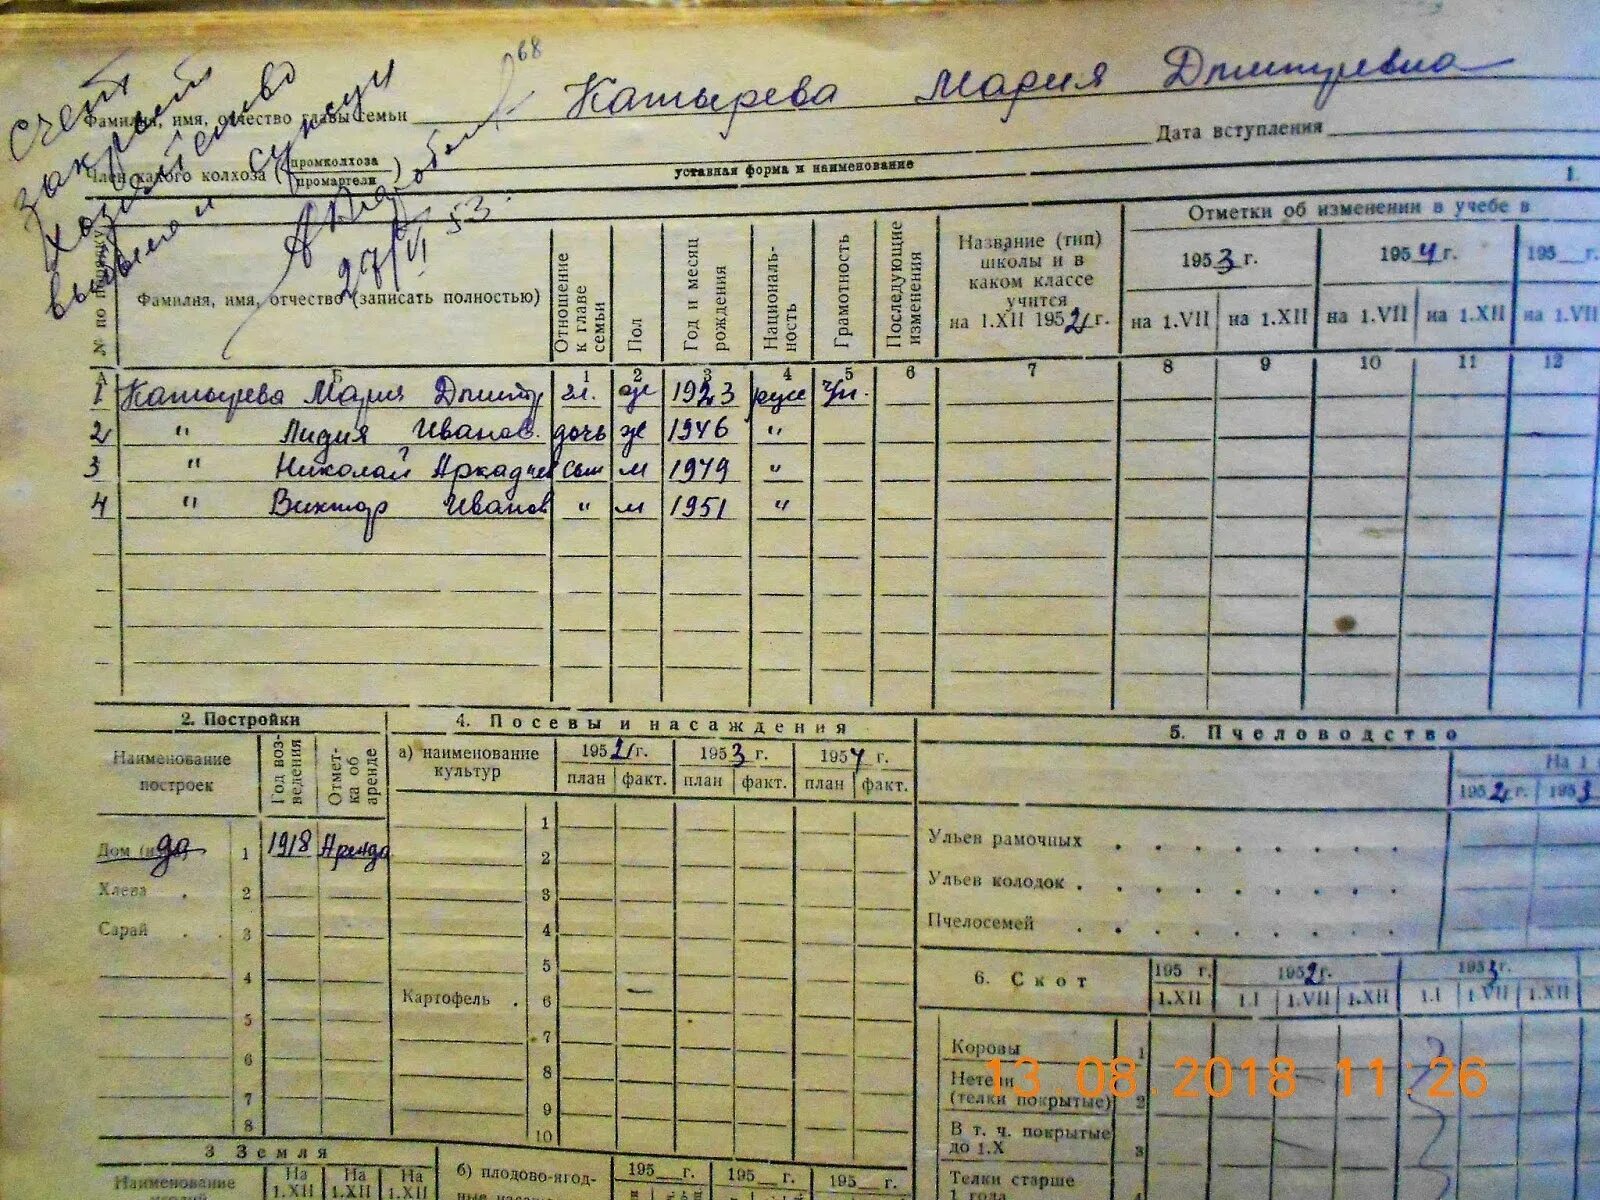 68
Счет
закрыт
хозяйство
выбыло
27/VI 53.
Фамилия, имя, отчество главы семьи Катырева Мария Дмитревна
Дата вступления
Член какого колхоза (промколхоза
промартели)
уставная форма и наименование
1.
№ по порядку
Фамилия, имя, отчество (записать полностью)
Отношение к главе семьи
Пол
Год и месяц рождения
Националь-
ность
Грамотность
Последующие изменения
Название (тип)
школы и в
каком классе
учится
на 1.XII 1952г.
Отметки об изменении в учебе в
1953г. 1954г. 195 г.
на 1.VII на 1.XII на 1.VII на 1.XII на 1.VII
А Б 1 2 3 4 5 6 7 8 9 10 11 12
1 Катырева Мария Дмитр гл. ж 1923 русс
2 " Лидия Иванов. дочь ж 1946 "
3 " Николай Аркадиев сын м 1949 "
4 " Виктор Иванов " м 1951 "
2. Постройки
Наименование
построек
Год воз-
ведения
Отмет-
ка об
аренде
Дом да 1 1918 Аренда
Хлева 2
Сарай 3
4
5
6
7
8
3 Земля
Наименование
На На На
1.XII 1.XII 1.XII
4. Посевы и насаждения
а) наименование
культур
1952г. 1953г. 1954г.
план факт. план факт. план факт.
1
2
3
4
5
Картофель 6 —
7
8
9
10
б) плодово-ягод-
195 г. 195 г. 195 г.
5. Пчеловодство
На 1
1952г. 1953
Ульев рамочных
Ульев колодок
Пчелосемей
6. Скот
195 г. 1952г. 1953г.
1.XII 1.I 1.VII 1.XII 1.I 1.VII 1.XII
Коровы 1
Нетели
(телки покрытые) 2
В т. ч. покрытые
до 1.X 3
Телки старше
1 года 4
13.08.2018 11:26